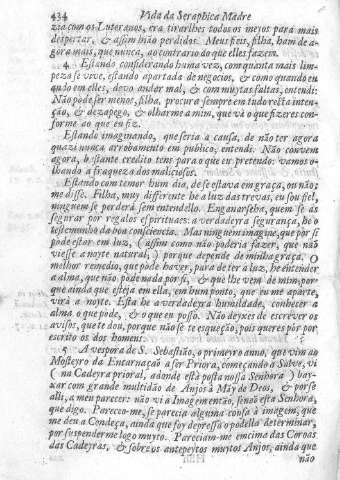 434 Vida da Seraphica Madre
zia com os Luteranos, era tirarlhes todos os meyos para mais
despertar, & assim hão perdidos. Meus fieis, filha, ham de a-
gora mais, que nunca, ao contrario do que elles fazem.
4. Estando considerando huma vez, com quanta mais lim-
peza se vive, estando apartada de negocios, & como quando eu
ando em elles, devo andar mal, & com muytas faltas, entendi:
Não póde ser menos, filha, procura sempre em tudo recta inten-
ção, & dezapego, & olharme a mim, que vá o que fizeres con-
forme ao que eu fiz.
Estando imaginando, que seria a causa, de não ter agora
quazi nunca arrobamento em publico, entendi: Não convem
agora, bastante credito tens para o que eu pretendo: vamos o-
lhando a fraqueza dos maliciosos.
Estando com temor hum dia, de se estava em graça, ou não;
me disse. Filha, muy differente he a luz das trevas, eu sou fiel,
ninguem se perderá sem entendello. Enganarseha, quem se as-
segurar por regalos espirituaes: a verdadeyra segurança, he o
testemunho da boa consciencia. Mas ninguem imagine, que por si
póde estar em luz, (assim como não poderia fazer, que não
viesse a noyte natural,) porque depende de minha graça. O
melhor remedio, que póde haver, para deter a luz, he entender
a alma, que não póde nada por si, & que lhe vem de mim; por-
que ainda que esteja em ella, em hum ponto, que eu me aparte,
virá a noyte. Esta he a verdadeyra humildade, conhecer a
alma o que póde, & o que eu posso. Não deyxes de escrever os
avisos, que te dou, porque não se te esqueção, pois queres pôr por
escrito os dos homens.
5. A vespora de S. Sebastião, o primeyro anno, que vim ao
Mosteyro da Encarnação a ser Priora, começando a Salve, vi
(na Cadeyra prioral, adonde está posta nossa Senhora) bay-
xar com grande multidão de Anjos à Mãy de Deos, & porse
alli, a meu parecer: não vi a Imagem então, senão esta Senhora,
que digo. Pareceo-me, se parecia alguma cousa à imagem, que
me deu a Condeça, ainda que foy depressa o podella determinar,
por suspenderme logo muyto. Pareciam-me emcima das Coroas
das Cadeyras, & sobre os antepeytos muytos Anjos, ainda que
não